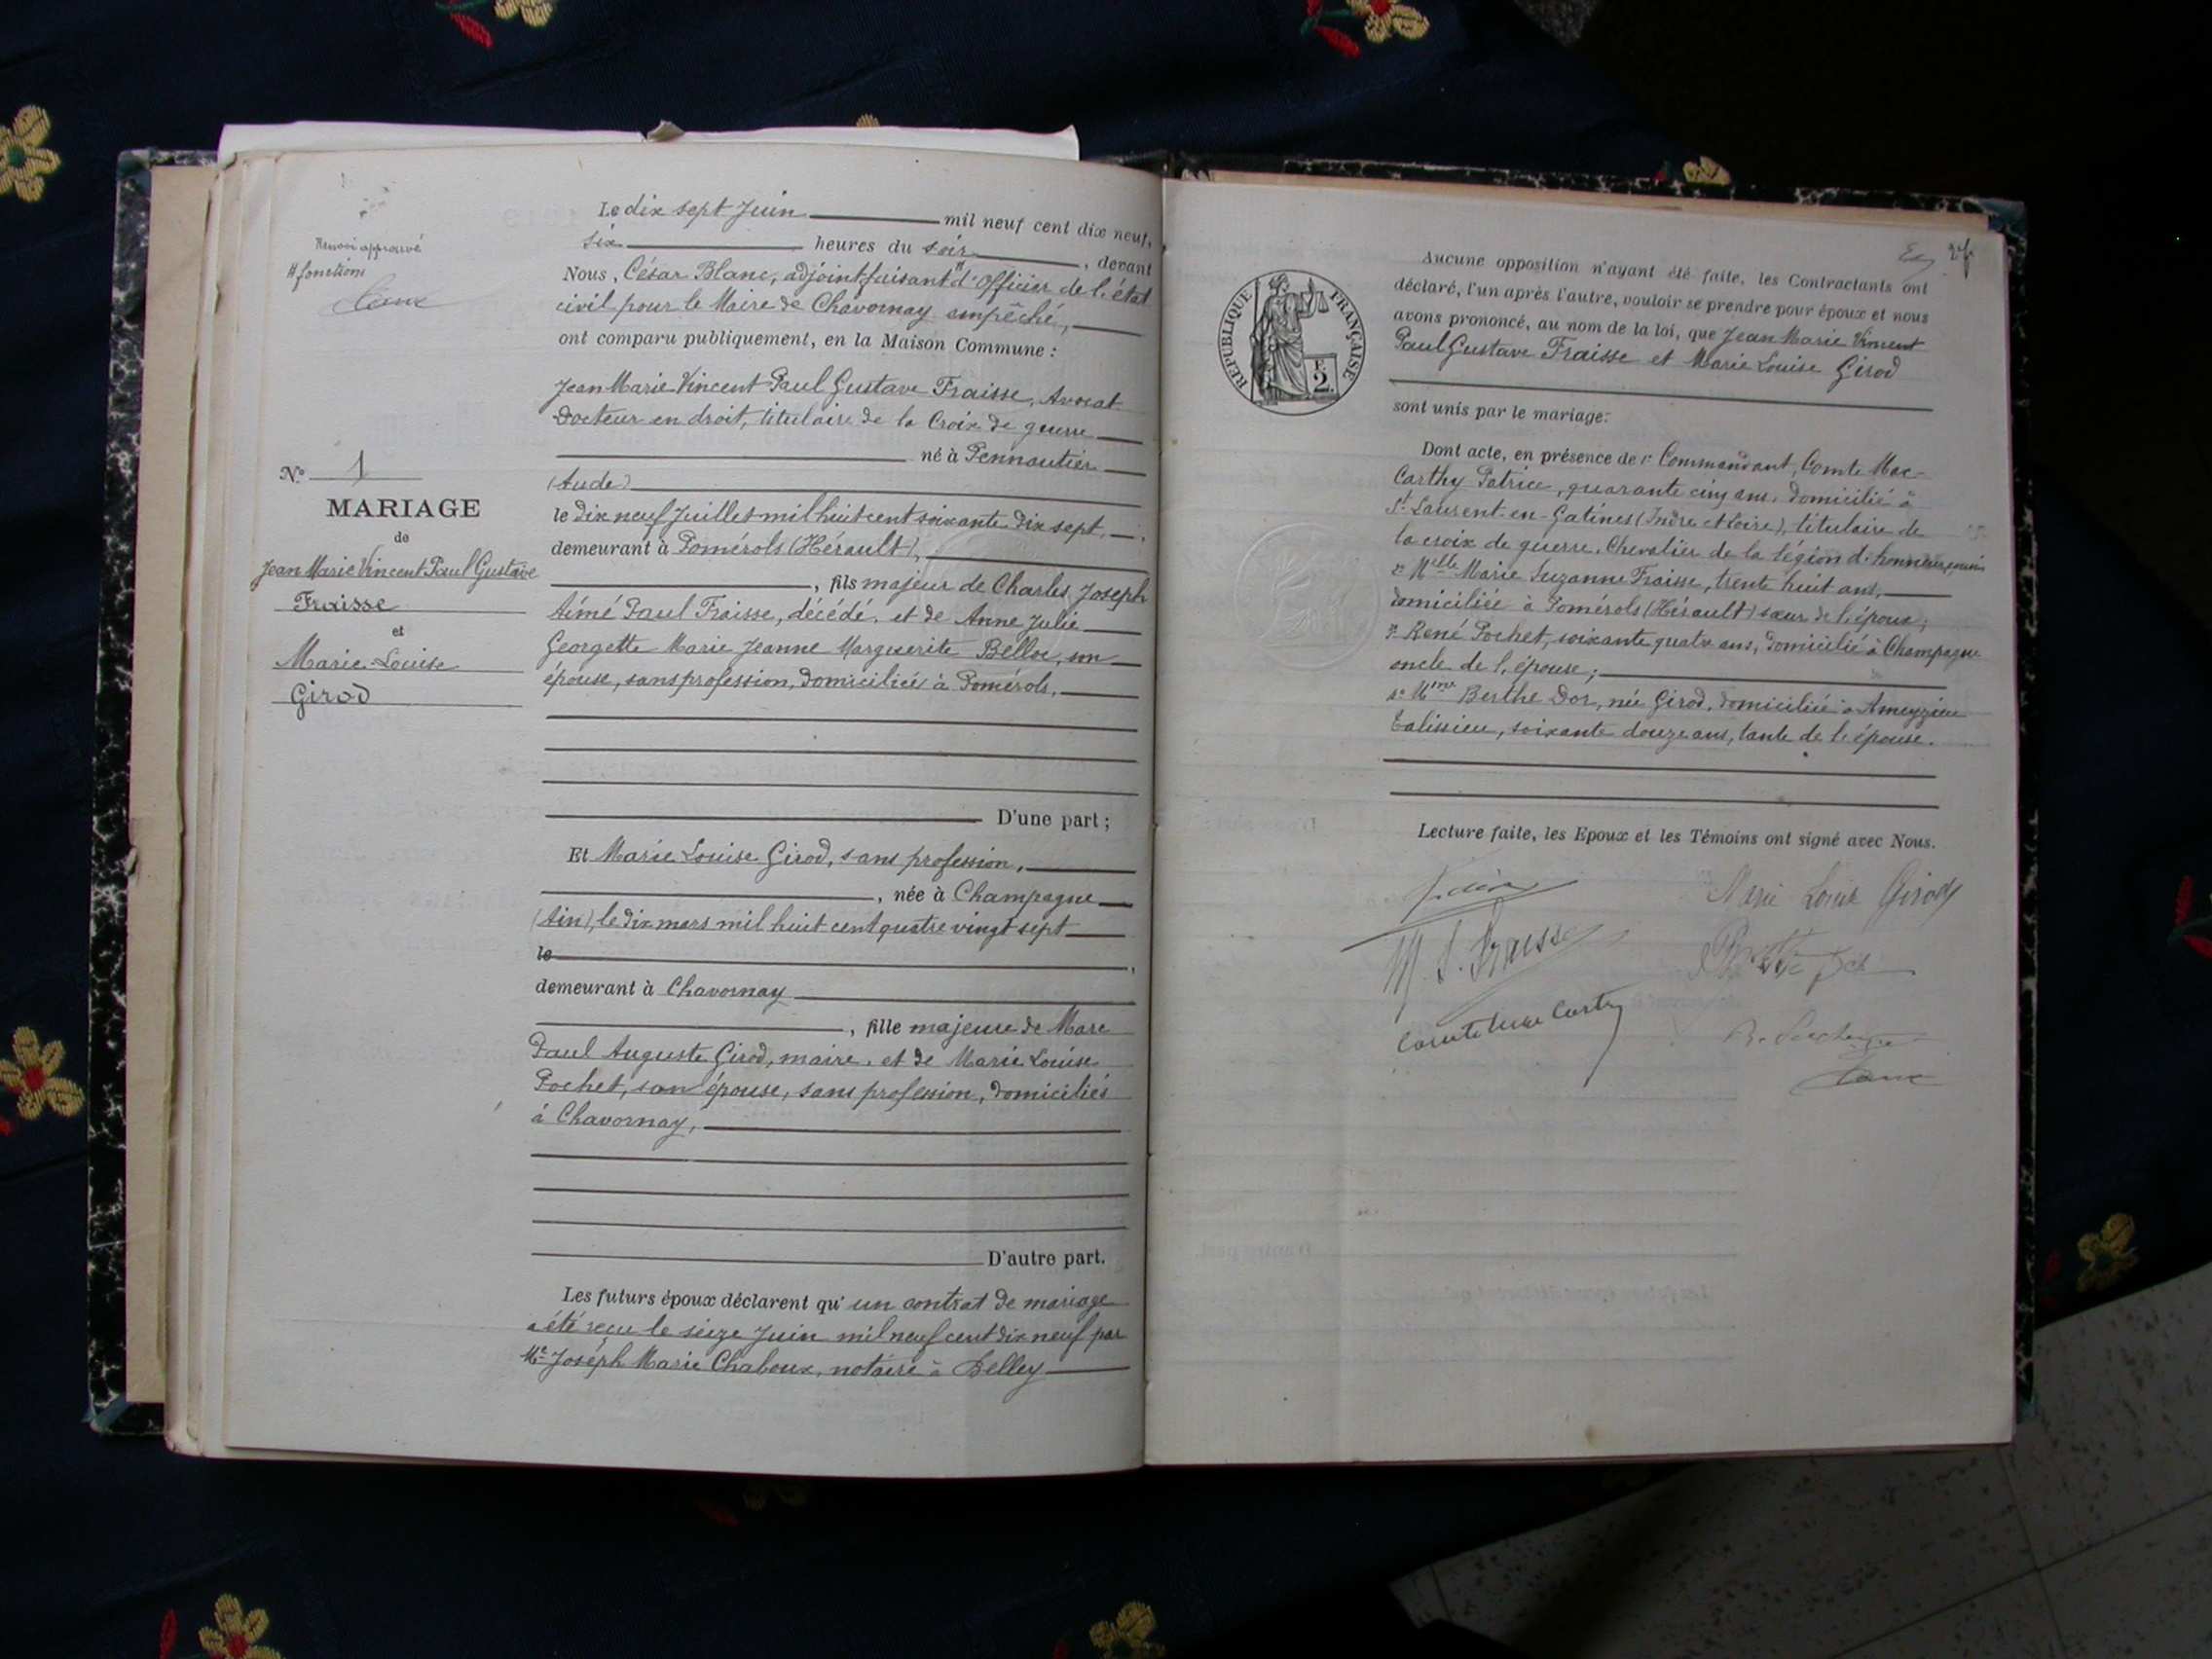 Renvoi approuvé
# fonctions
Blanc
N° 1
MARIAGE
de
Jean Marie Vincent Paul Gustave
Fraisse
et
Marie-Louise
Girod
Le dix sept Juin mil neuf cent dix neuf,
six heures du soir, devant
Nous, César Blanc, adjoint faisant # d'Officier de l'état
civil pour le Maire de Chavornay empêché,
ont comparu publiquement, en la Maison Commune :
Jean Marie Vincent Paul Gustave Fraisse, Avocat
Docteur en droit, titulaire de la Croix de guerre
né à Pennautier
(Aude)
le dix neuf Juillet mil huit cent soixante dix sept,
demeurant à Pomérols (Hérault),
, fils majeur de Charles Joseph
Aimé Paul Fraisse, décédé, et de Anne Julie
Georgette Marie Jeanne Marguerite Belloc, son
épouse, sans profession, domiciliée à Pomérols,
D'une part ;
Et Marie Louise Girod, sans profession,
, née à Champagne
(Ain), le dix mars mil huit cent quatre vingt sept
le ,
demeurant à Chavornay
, fille majeure de Marc
Paul Auguste Girod, maire, et de Marie Louise
Pochet, son épouse, sans profession, domiciliés
à Chavornay,
D'autre part.
Les futurs époux déclarent qu'un contrat de mariage
a été reçu le seize Juin mil neuf cent dix neuf par
Me Joseph Marie Chaboux, notaire à Belley
REPUBLIQUE FRANÇAISE
F.
2.
Aucune opposition n'ayant été faite, les Contractants ont
déclaré, l'un après l'autre, vouloir se prendre pour époux et nous
avons prononcé, au nom de la loi, que Jean Marie Vincent
Paul Gustave Fraisse et Marie Louise Girod
sont unis par le mariage.
Dont acte, en présence de 1° Commandant, Comte Mac-
Carthy Patrice, quarante cinq ans, domicilié à
St Laurent-en-Gatines (Indre et Loire), titulaire de
la croix de guerre, Chevalier de la légion d'honneur,
2° Melle Marie Suzanne Fraisse, trente huit ans,
domiciliée à Pomérols (Hérault) sœur de l'époux ;
3° René Pochet, soixante quatre ans, domicilié à Champagne
oncle de l'épouse ;
4° Mme Berthe Dor, née Girod, domiciliée à Ameyzieu
Talissieu, soixante douze ans, tante de l'épouse.
Lecture faite, les Epoux et les Témoins ont signé avec Nous.
Marie Louise Girod
M. S. Fraisse
Comte Mac Carthy
Blanc